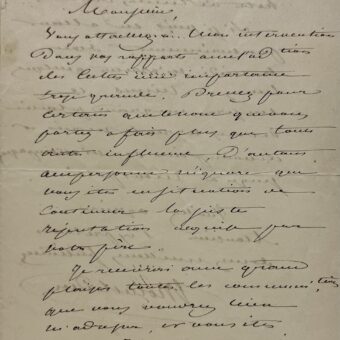 Monsieur,
Vous attachez à mon intervention
dans vos rapports avec
des Cultes une importance
trop grande. Prenez pour
certain que
portez a fois plus que toute
autre influence. D'autant
que personne n'ignore que
vous êtes en situation de
continuer la juste
réputation acquise par
votre père.
Je recevrai avec grand
plaisir toutes les communications
que vous voudrez bien
m'adresser, et vous êtes